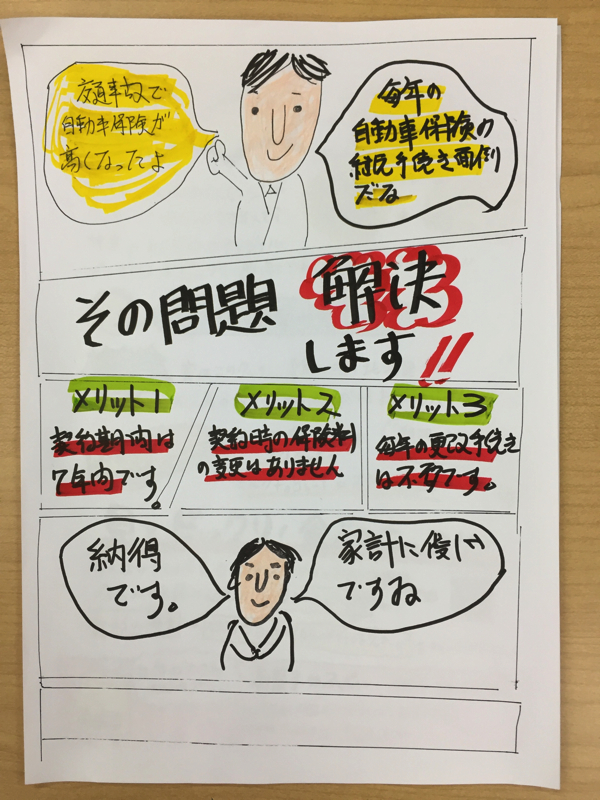 交通事故で
自動車保険が
高くなったよ
毎年の
自動車保険の
継続手続き面倒
だな
その問題 解決
します!!
メリット1
契約期間は
7年間です。
メリット2
契約時の保険料
の変更はありません
メリット3
毎年の更改手続き
は不要です。
納得
です。
家計に優しい
ですね